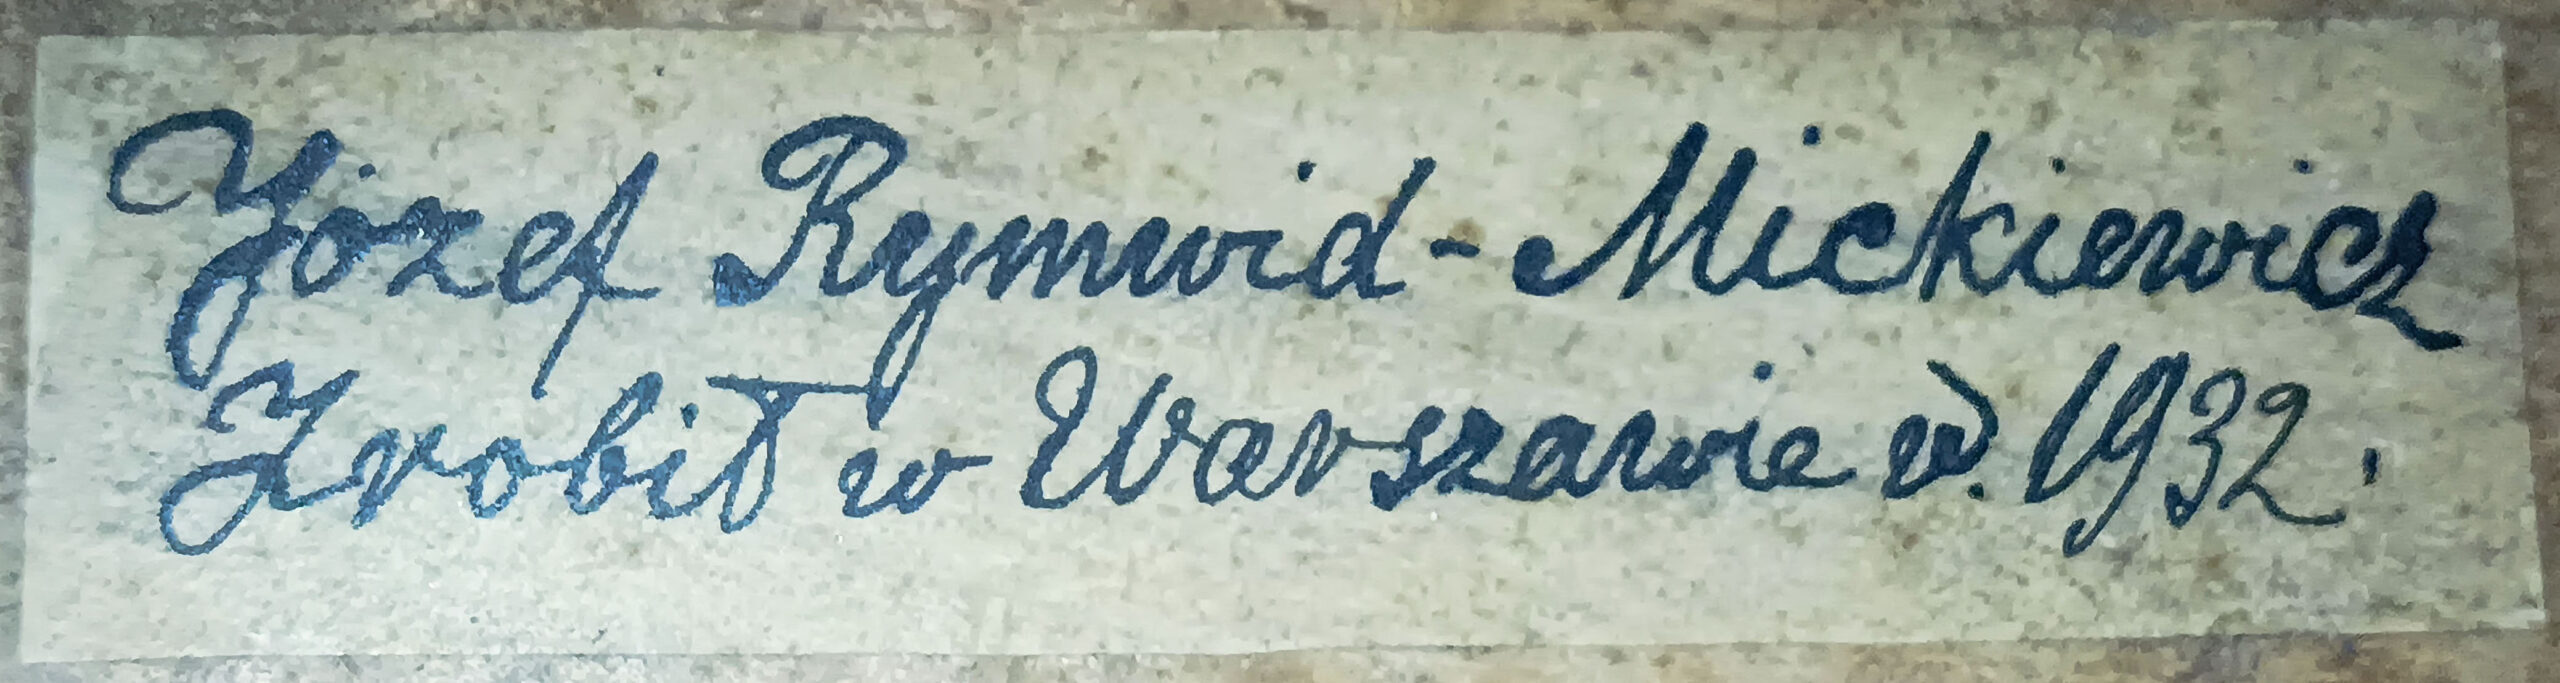 Józef Rymwid-Mickiewicz
Zrobił w Warszawie w. 1932.